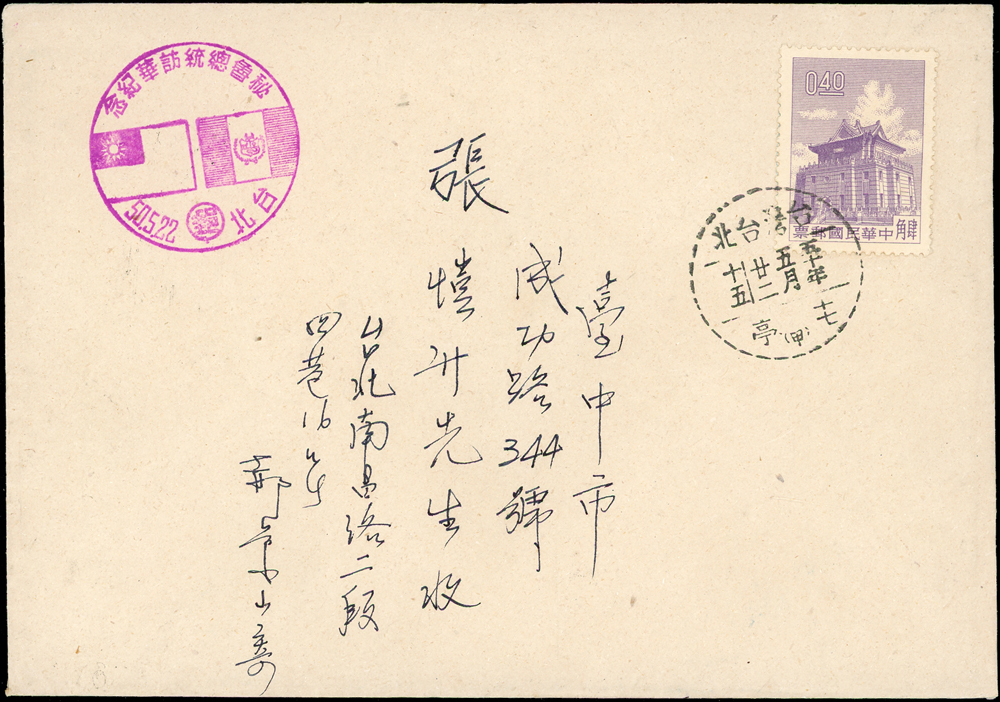 秘魯總統訪華紀念
50.5.22
台北
0.40
角肆
中華民國郵票
台灣台北
五十年
五月
廿二
十五
十七
亭(甲)
臺中市
成功路344號
張
愷升先生收
台北南昌路二段
四巷16号
郝景山寄